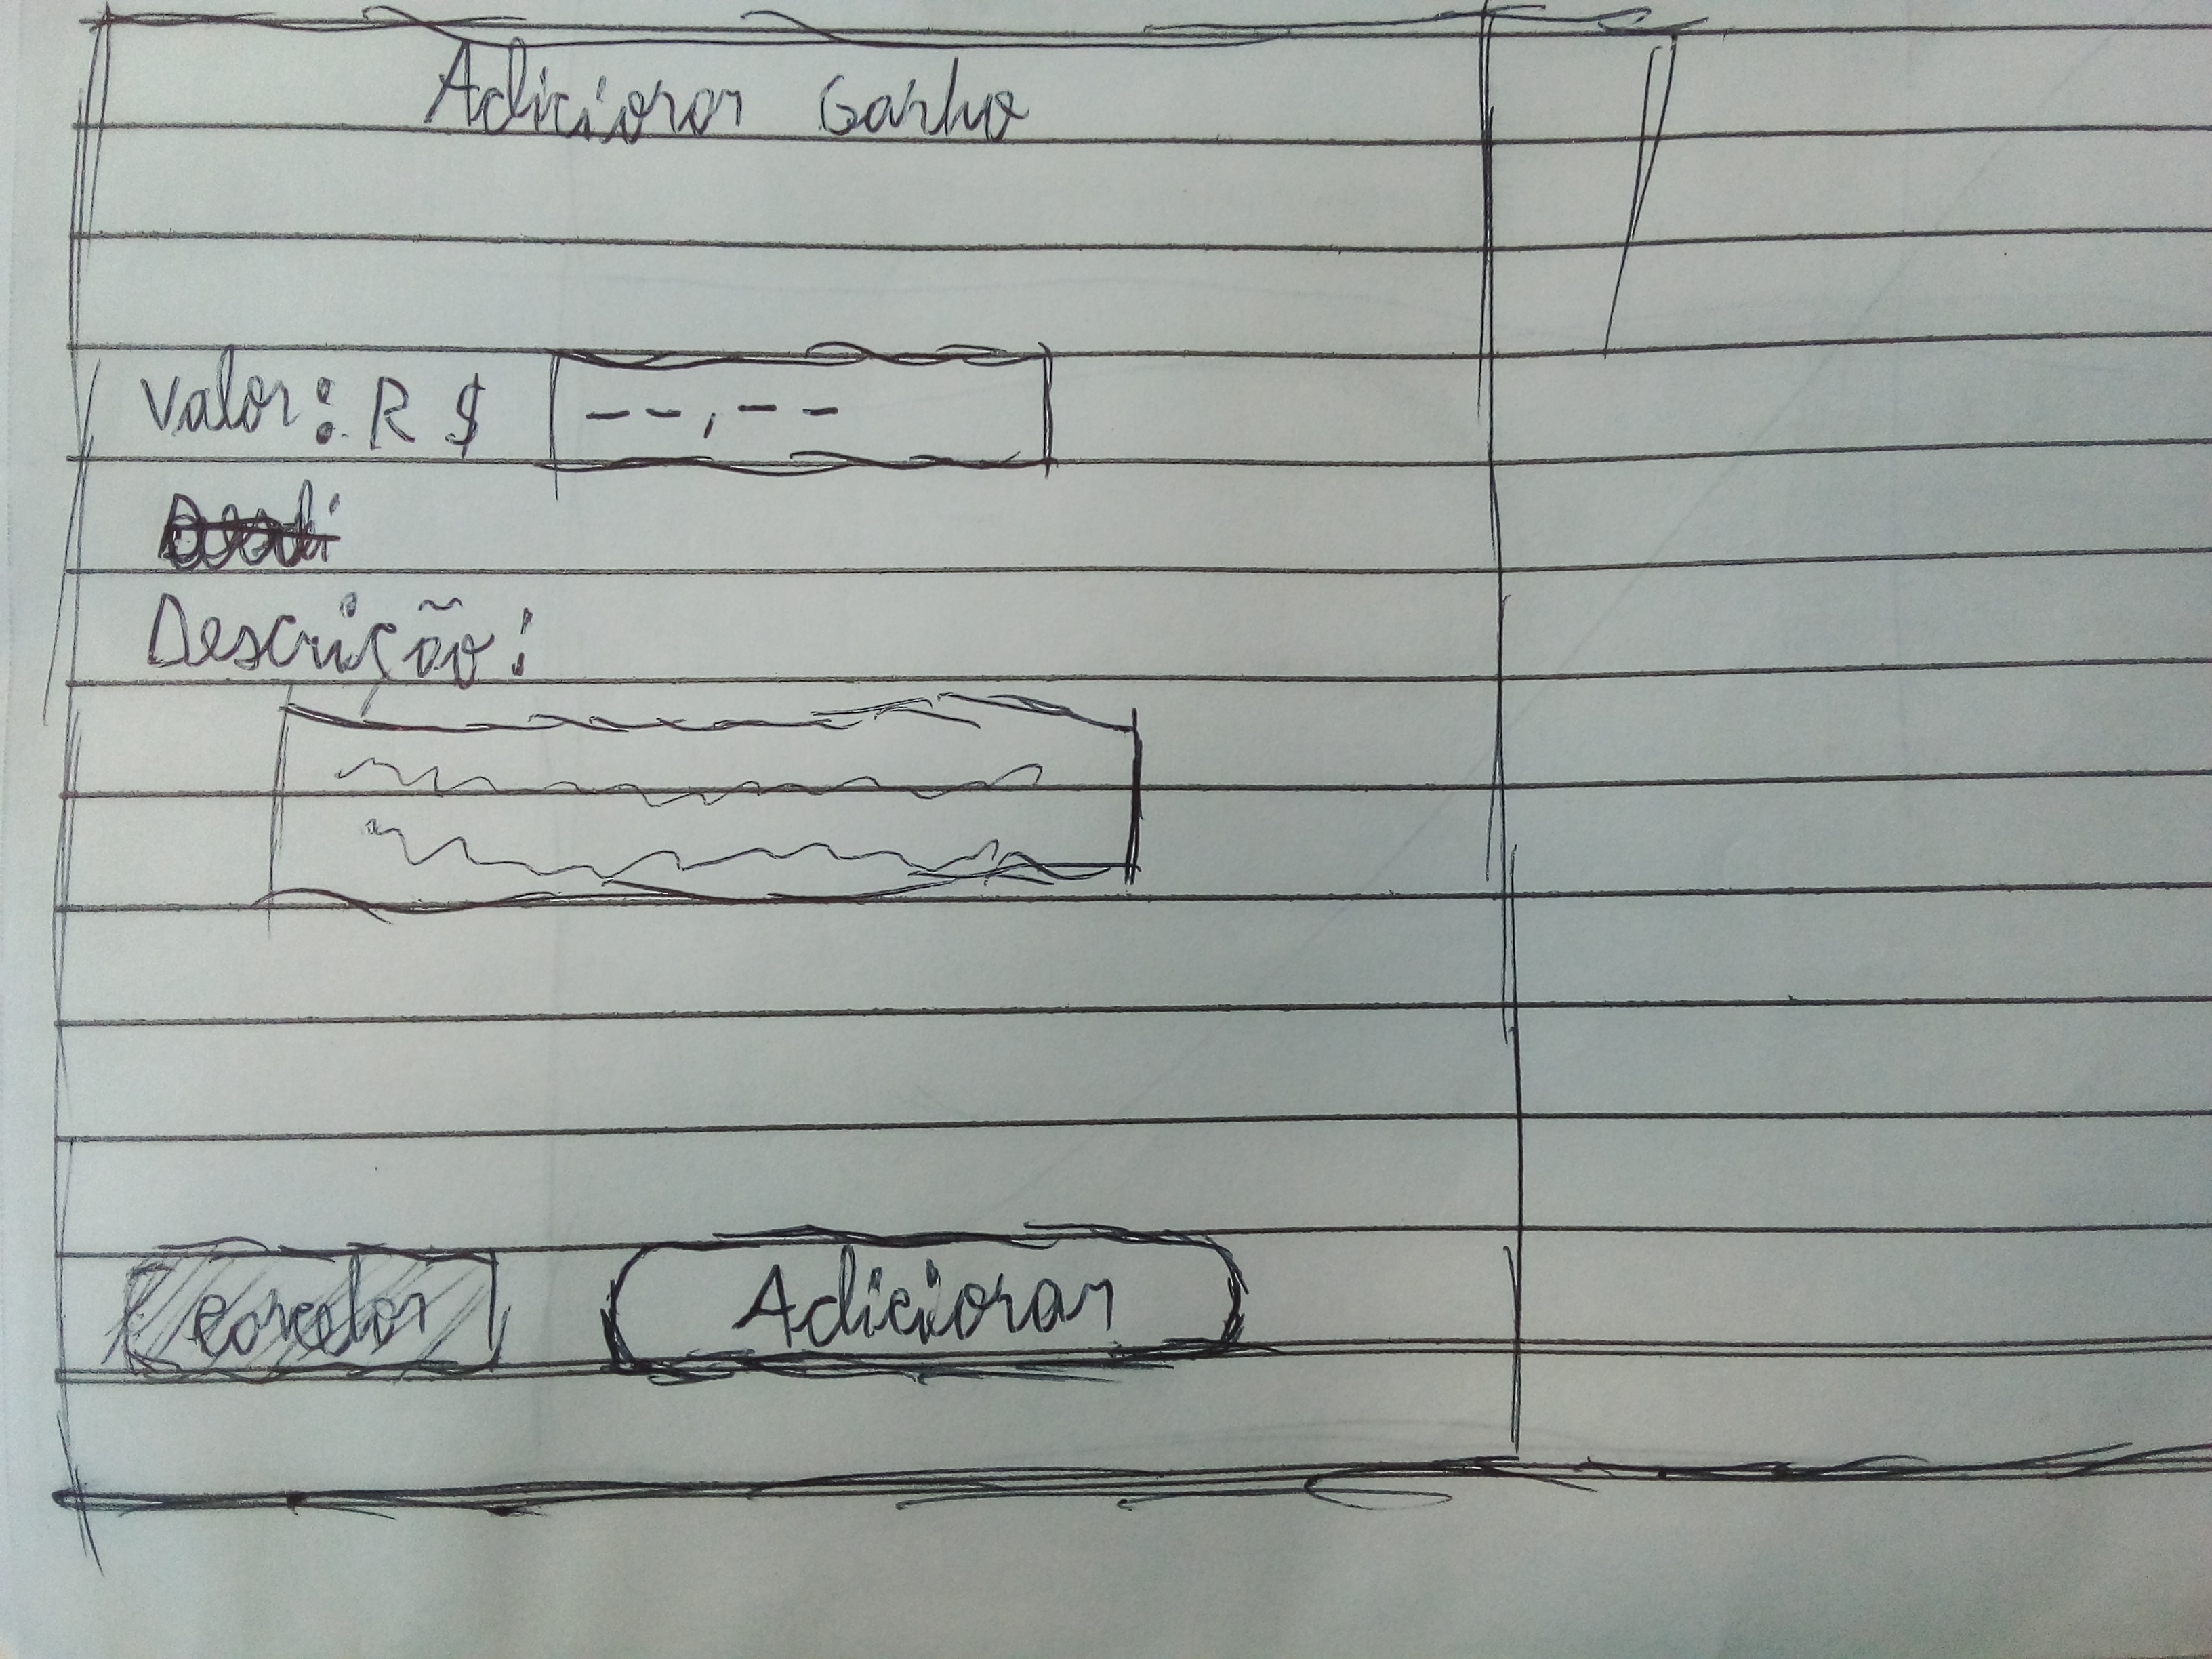 Adicionar Ganho
Valor: R$ --,--
Descrição:
Cancelar Adicionar